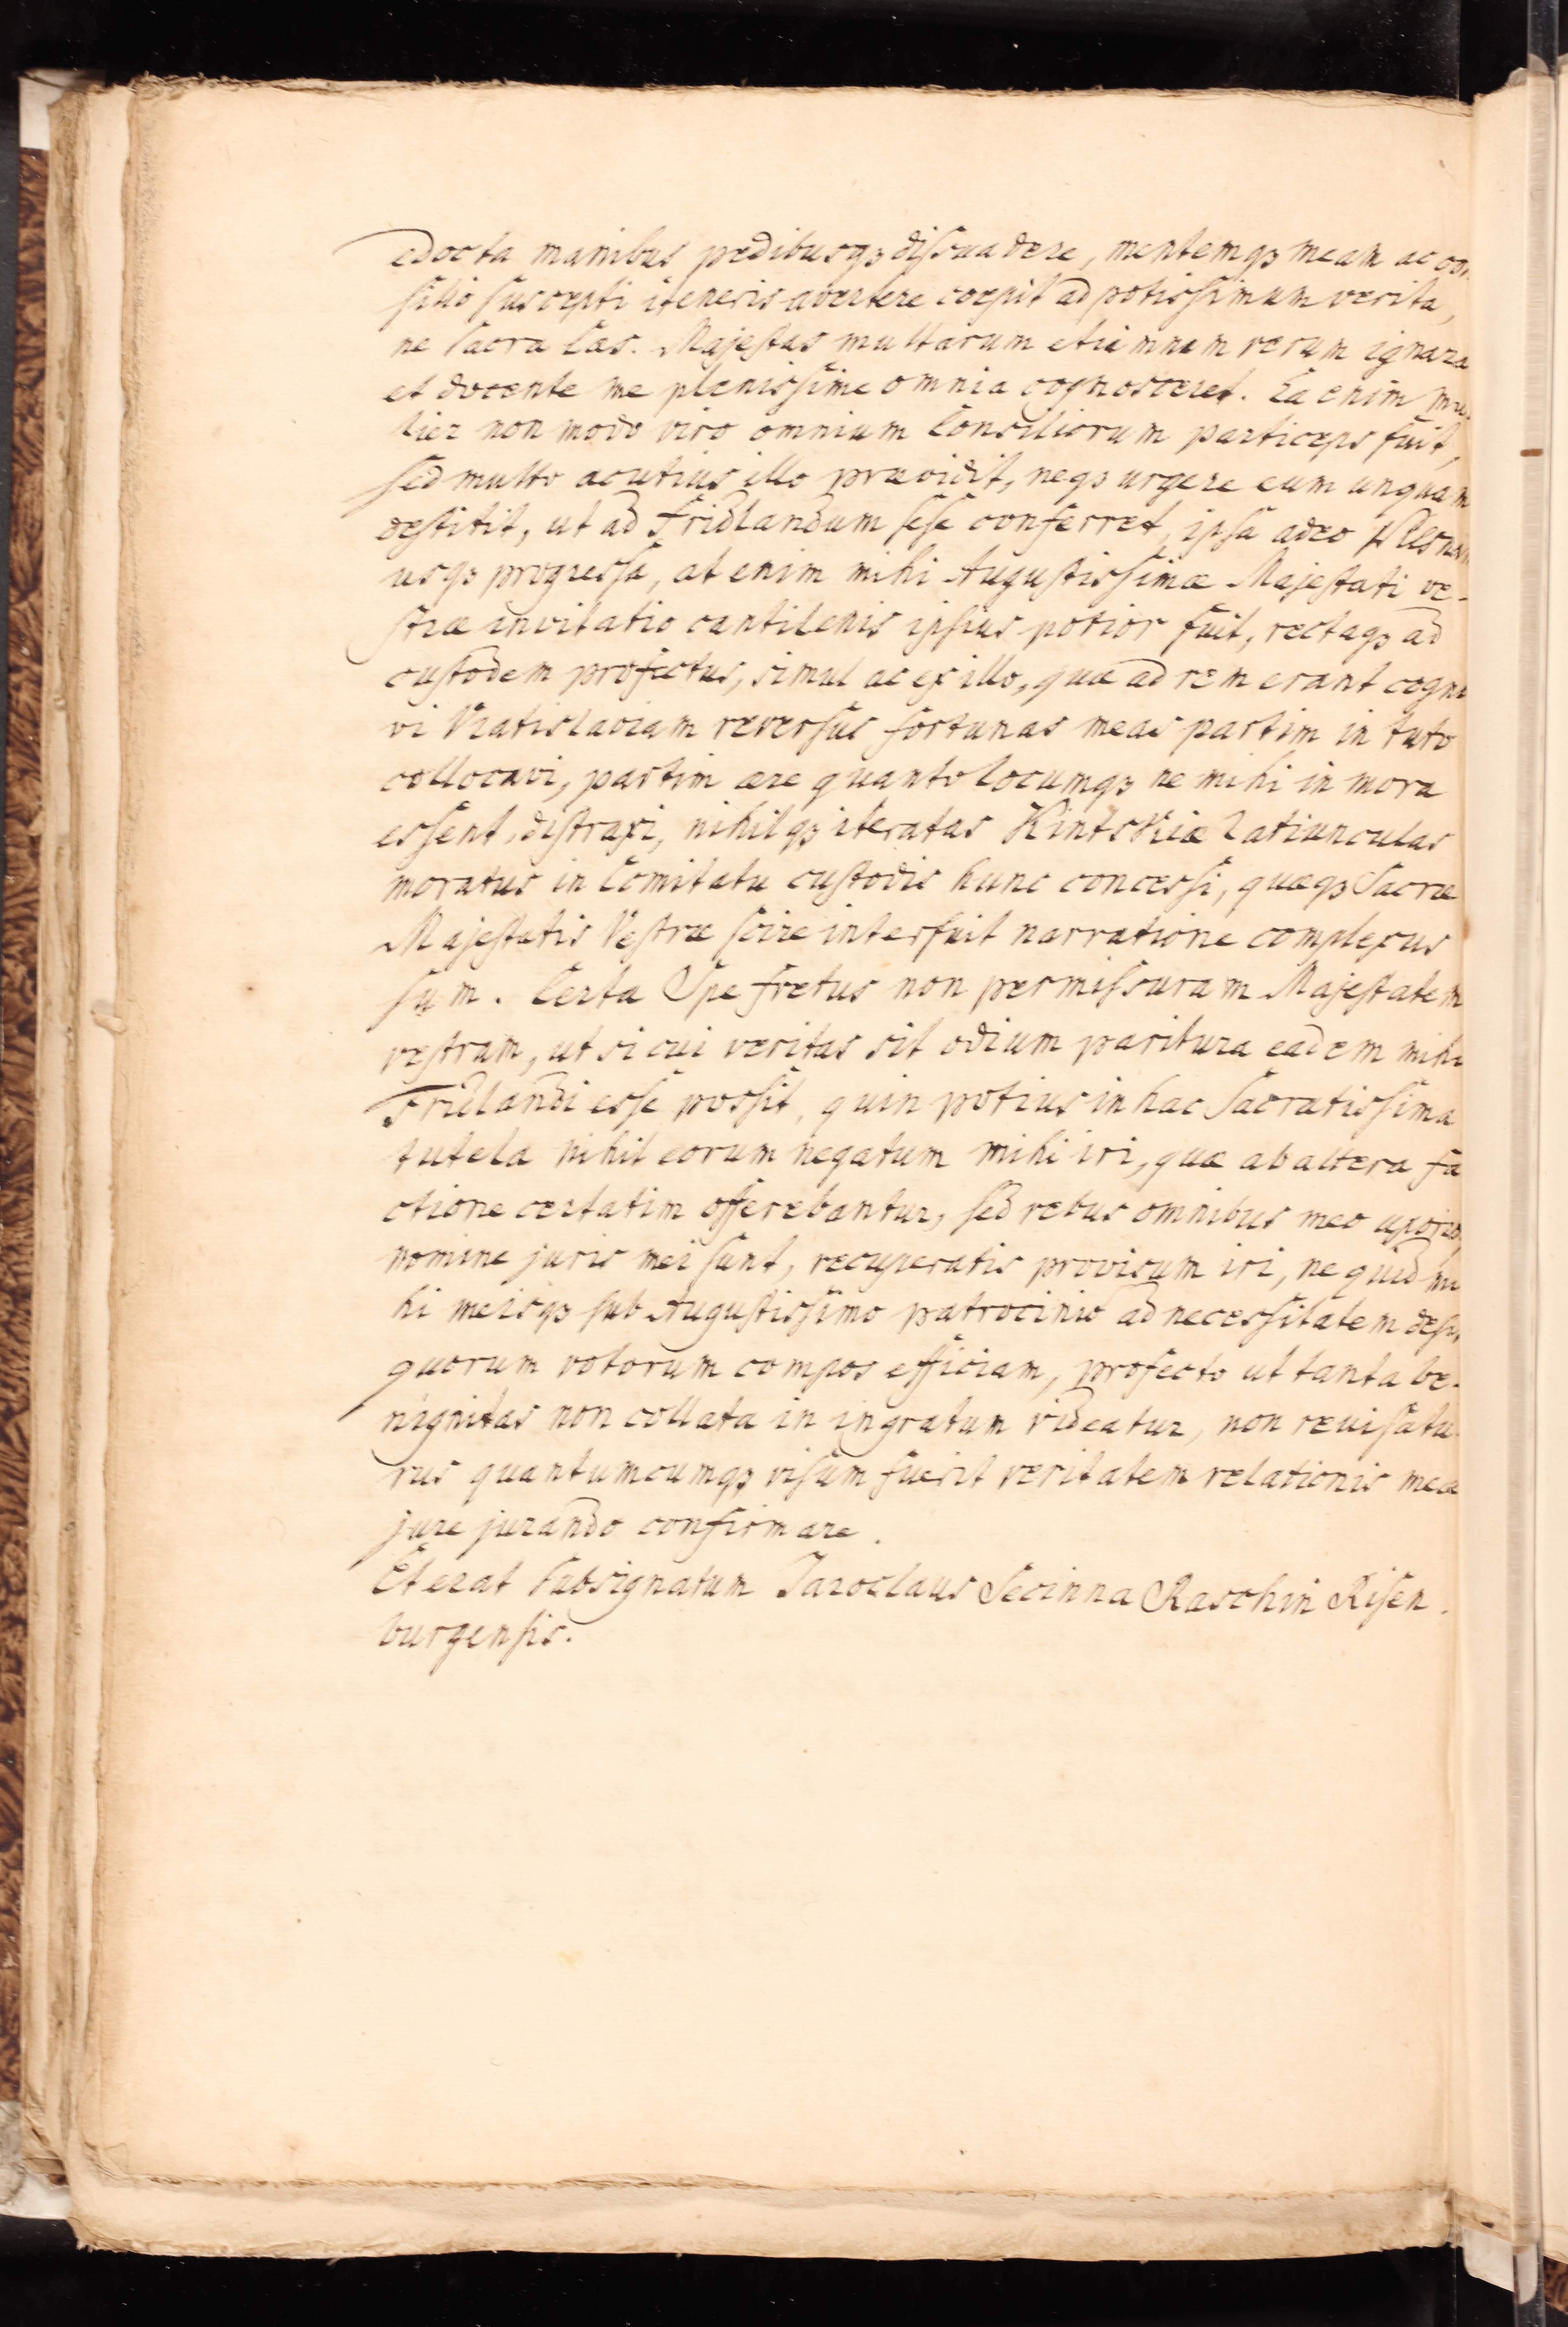 edocta manibus pedibusqꝫ dissuadere, mentemqꝫ meam ac con
silio suscepti iteneris avertere coepit ad potissimum verita,
ne Sacra Caes. Majestas multarum etiamnum rerum ignara
et docente me plenissime omnia cognosceret. Ea enim mu-
lier non modo viro omnium Consiliorum particeps fuit,
sed multo acutius illo prævidit, neqꝫ urgere eum unquam
destitit, ut ad Fridlandum sese conferret, ipsa adeo Plesnam
usqꝫ progressa, at enim mihi Augustissimæ Majestati ve-
stræ invitatio cantilenis ipsius potior fuit, rectaqꝫ ad
custodem profectus, simul ac ex illo, quæ ad rem erant cogno
vi Vratislaviam reversus fortunas meas partim in tuto
collocavi, partim ære quanto locumqꝫ ne mihi in mora
essent, distraxi, nihilqꝫ iteratas Kintskiæ ratiunculas
moratus in Comitatu custodis hunc concessi, quæqꝫ Sacræ
Majestatis Vestræ scire interfuit narratione complexus
sum. Certa Spe fretus non permissuram Majestatem
vestram, ut si cui veritas sit odium paritura eadem mihi
Fridlandi esse possit, quin potius in hac Sacratissima
tutela nihil eorum negatum mihi iri, quæ ab altera fa
ctione certatim offerebantur, sed rebus omnibus meo uxoris
nomine juris mei sunt, recuperatis provisum iri, ne quid mi
hi meisqꝫ sub Augustissimo patrocinio ad necessitatem desit,
quorum votorum compos efficiam, profecto ut tanta be-
nignitas non collata in ingratum videatur, non revisatu
rus quantumcumqꝫ visum fuerit veritatem relationis meæ
jure jurando confirmare.
Et erat Subsignatum Jaroslaus Secinna Raschin Risen.
burgensis.